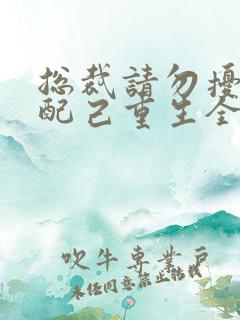 総裁請勿擾
配己重生全
吹牛專業戶
未任同意禁止转载